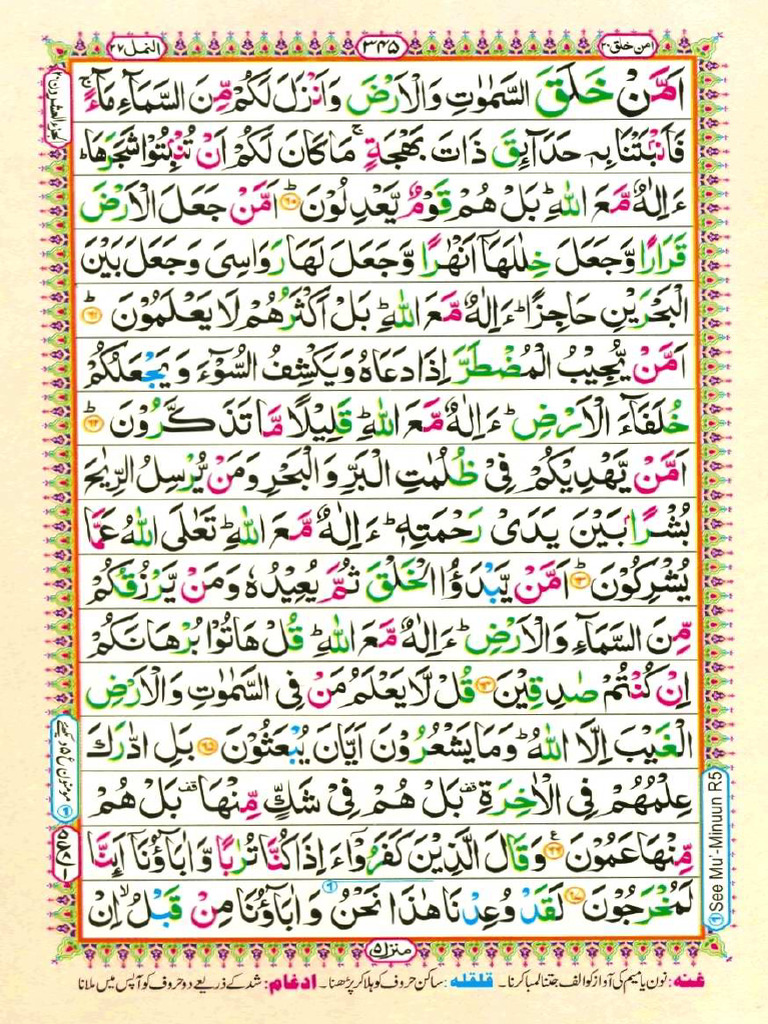 امن خلق ۲۰
۳۴۵
النمل ۲۷
اَمَّنْ خَلَقَ السَّمٰوٰتِ وَالْاَرْضَ وَاَنْزَلَ لَكُمْ مِّنَ السَّمَآءِ مَآءً ۚ
فَاَنْۢبَتْنَا بِهٖ حَدَآئِقَ ذَاتَ بَهْجَةٍ ۚ مَا كَانَ لَكُمْ اَنْ تُنْۢبِتُوْا شَجَرَهَا ؕ
ءَاِلٰهٌ مَّعَ اللّٰهِ ؕ بَلْ هُمْ قَوْمٌ يَّعْدِلُوْنَ ؕ۶۰ اَمَّنْ جَعَلَ الْاَرْضَ
قَرَارًا وَّجَعَلَ خِلٰلَهَاۤ اَنْهٰرًا وَّجَعَلَ لَهَا رَوَاسِىَ وَجَعَلَ بَيْنَ
الْبَحْرَيْنِ حَاجِزًا ؕ ءَاِلٰهٌ مَّعَ اللّٰهِ ؕ بَلْ اَكْثَرُهُمْ لَا يَعْلَمُوْنَ ؕ۶۱
اَمَّنْ يُّجِيْبُ الْمُضْطَرَّ اِذَا دَعَاهُ وَيَكْشِفُ السُّوْٓءَ وَيَجْعَلُكُمْ
خُلَفَآءَ الْاَرْضِ ؕ ءَاِلٰهٌ مَّعَ اللّٰهِ ؕ قَلِيْلًا مَّا تَذَكَّرُوْنَ ؕ۶۲
اَمَّنْ يَّهْدِيْكُمْ فِىْ ظُلُمٰتِ الْبَرِّ وَالْبَحْرِ وَمَنْ يُّرْسِلُ الرِّيٰحَ
بُشْرًاۢ بَيْنَ يَدَىْ رَحْمَتِهٖ ؕ ءَاِلٰهٌ مَّعَ اللّٰهِ ؕ تَعٰلَى اللّٰهُ عَمَّا
يُشْرِكُوْنَ ؕ۶۳ اَمَّنْ يَّبْدَؤُا الْخَلْقَ ثُمَّ يُعِيْدُهٗ وَمَنْ يَّرْزُقُكُمْ
مِّنَ السَّمَآءِ وَالْاَرْضِ ؕ ءَاِلٰهٌ مَّعَ اللّٰهِ ؕ قُلْ هَاتُوْا بُرْهَانَكُمْ
اِنْ كُنْتُمْ صٰدِقِيْنَ ۶۴ قُلْ لَّا يَعْلَمُ مَنْ فِى السَّمٰوٰتِ وَالْاَرْضِ
الْغَيْبَ اِلَّا اللّٰهُ ؕ وَمَا يَشْعُرُوْنَ اَيَّانَ يُبْعَثُوْنَ ۶۵ بَلِ ادّٰرَكَ
عِلْمُهُمْ فِى الْاٰخِرَةِ قف بَلْ هُمْ فِىْ شَكٍّ مِّنْهَا قف بَلْ هُمْ
مِّنْهَا عَمُوْنَ ۶۶ع وَقَالَ الَّذِيْنَ كَفَرُوْٓا ءَاِذَا كُنَّا تُرٰبًا وَّاٰبَآؤُنَاۤ اَئِنَّا
لَمُخْرَجُوْنَ ۶۷ لَقَدْ وُعِدْنَا هٰذَا نَحْنُ وَاٰبَآؤُنَا مِنْ قَبْلُ ۙ اِنْ
منزل ۵
① See Mu'-Minuun R5
غنه: نون یا میم کی آواز کو الف جتنا لمبا کرنا۔ قلقله: ساکن حروف کو ہلا کر پڑھنا۔ ادغام: شد کے ذریعے دو حروف کو آپس میں ملانا